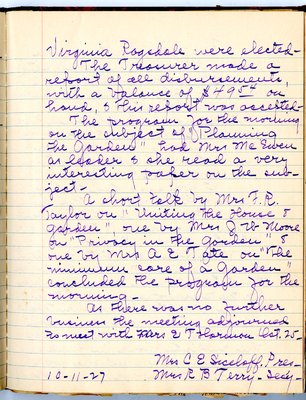 Virginia Ragsdale were elected-
The Treasurer made a
report of all disbursements,
with a balance of $49 54 on
hand, & this report was accepted.
The program for the morning
on the subject of "Planning
the Garden" had Mrs McEwen
as leader & she read a very
interesting paper on the sub-
ject-
A short talk by Mrs F. R.
Taylor on "Uniting the House &
garden", one by Mrs J W Moore
on "Privacy in the garden", &
one by Mrs A E Tate on "The
minimum care of a Garden"
concluded the program for the
morning-
As there was no further
business the meeting adjourned
to meet with Mrs E T Harmon Oct. 25-
Mrs C E Siceloff, Pres-
10-11-27 Mrs R B Terry- Secy-